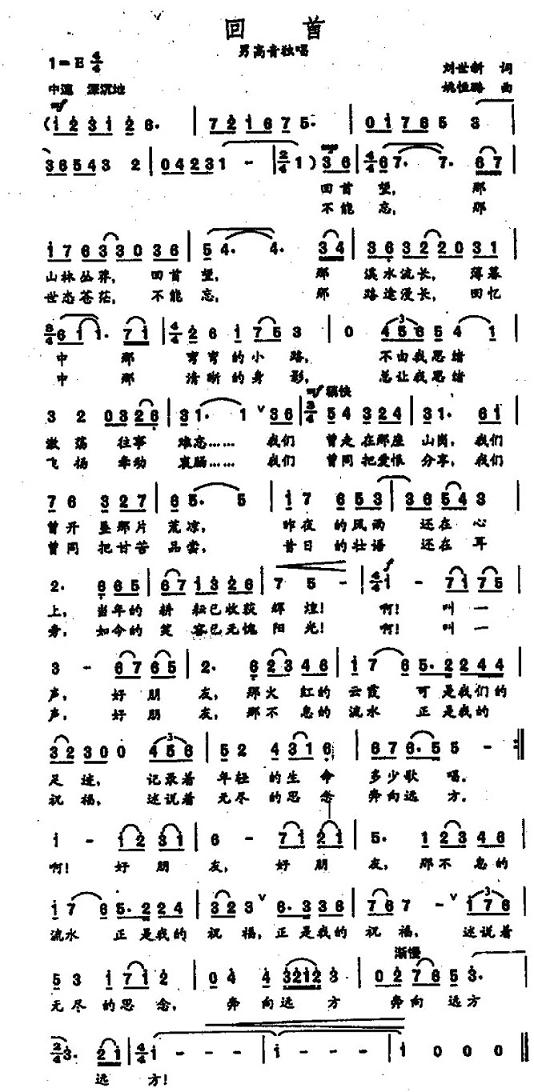 回 首
男高音独唱
1=E 4/4
刘世新 词
中速 深沉地
姚恒璐 曲
mf
(1 2 3 1 2 6· | 7 2 1 6 7 5· | 0 1 7 6 5 3
3 6 5 4 3 2 | 0 4 2 2 3 1 - | 2/4 1 ) 3 6 | 4/4 6 7· 7· 6 7
回首 望， 那
不能 忘， 那
1 7 6 3 3 0 3 6 | 5 4· 4· 3 4 | 3 6 3 2 2 0 3 1
山林丛莽， 回首 望， 那 溪水流长， 薄暮
世态苍茫， 不能 忘， 那 路途漫长， 回忆
中 那 弯弯的小 路， 不由我思绪
中 那 清晰的身 影， 总让我思绪
mf 稍快
3 2 0 3 2 6 | 3 1· 1 3 6 | 3/4 5 4 3 2 4 | 3 1· 6 1
激荡 往事 难忘…… 我们 曾走在那座 山岗，我们
飞扬 牵动 衷肠…… 我们 曾同把爱恨 分享，我们
7 6 3 2 7 | 6 5· 5 | 1 7 6 5 3 | 3 6 5 4 3
曾开垦那片 荒凉， 昨夜 的风雨 还在 心
曾同把甘苦 品尝， 昔日 的壮语 还在 耳
2· 6 6 5 | 6 7 1 3 2 6 | 7 5 - | 4/4 1 - 7 1 7 5
上，当年的 耕耘已收获 辉煌！ 啊！ 叫一
旁，如今的 笑容已无愧 阳光！ 啊！ 叫一
3 - 6 7 6 5 | 2· 6 2 3 4 3 | 1 7 6 5· 2 2 4 4
声， 好朋 友，那火红的 云霞 可是我们的
声， 好朋 友，那不息的 流水 正是我的
3 2 3 0 0 4 5 6 | 5 2 4 3 1 6 | 6 7 6· 5 5 - :‖
足迹， 记录着 年轻的生命 多少歌唱。
祝福， 述说着 无尽的思念 奔向远方。
1 - 1 2 3 1 | 6 - 7 1 2 1 | 5· 1 2 3 4 6
啊！ 好朋 友， 好朋 友，那不息的
1 7 6 5· 2 2 4 | 3 2 3 6· 3 3 6 | 7 6 7 - 1 7 6
流水 正是我的 祝福，正是我的 祝福， 述说着
渐慢
5 3 1 7 1 2 | 0 4 4 3 2 1 2 3 | 0 2 7 6 5 3·
无尽的思念， 奔向远方 奔向远方
2/4 3· 2 1 | 4/4 1 - - - | 1 - - - | 1 0 0 0
远 方！